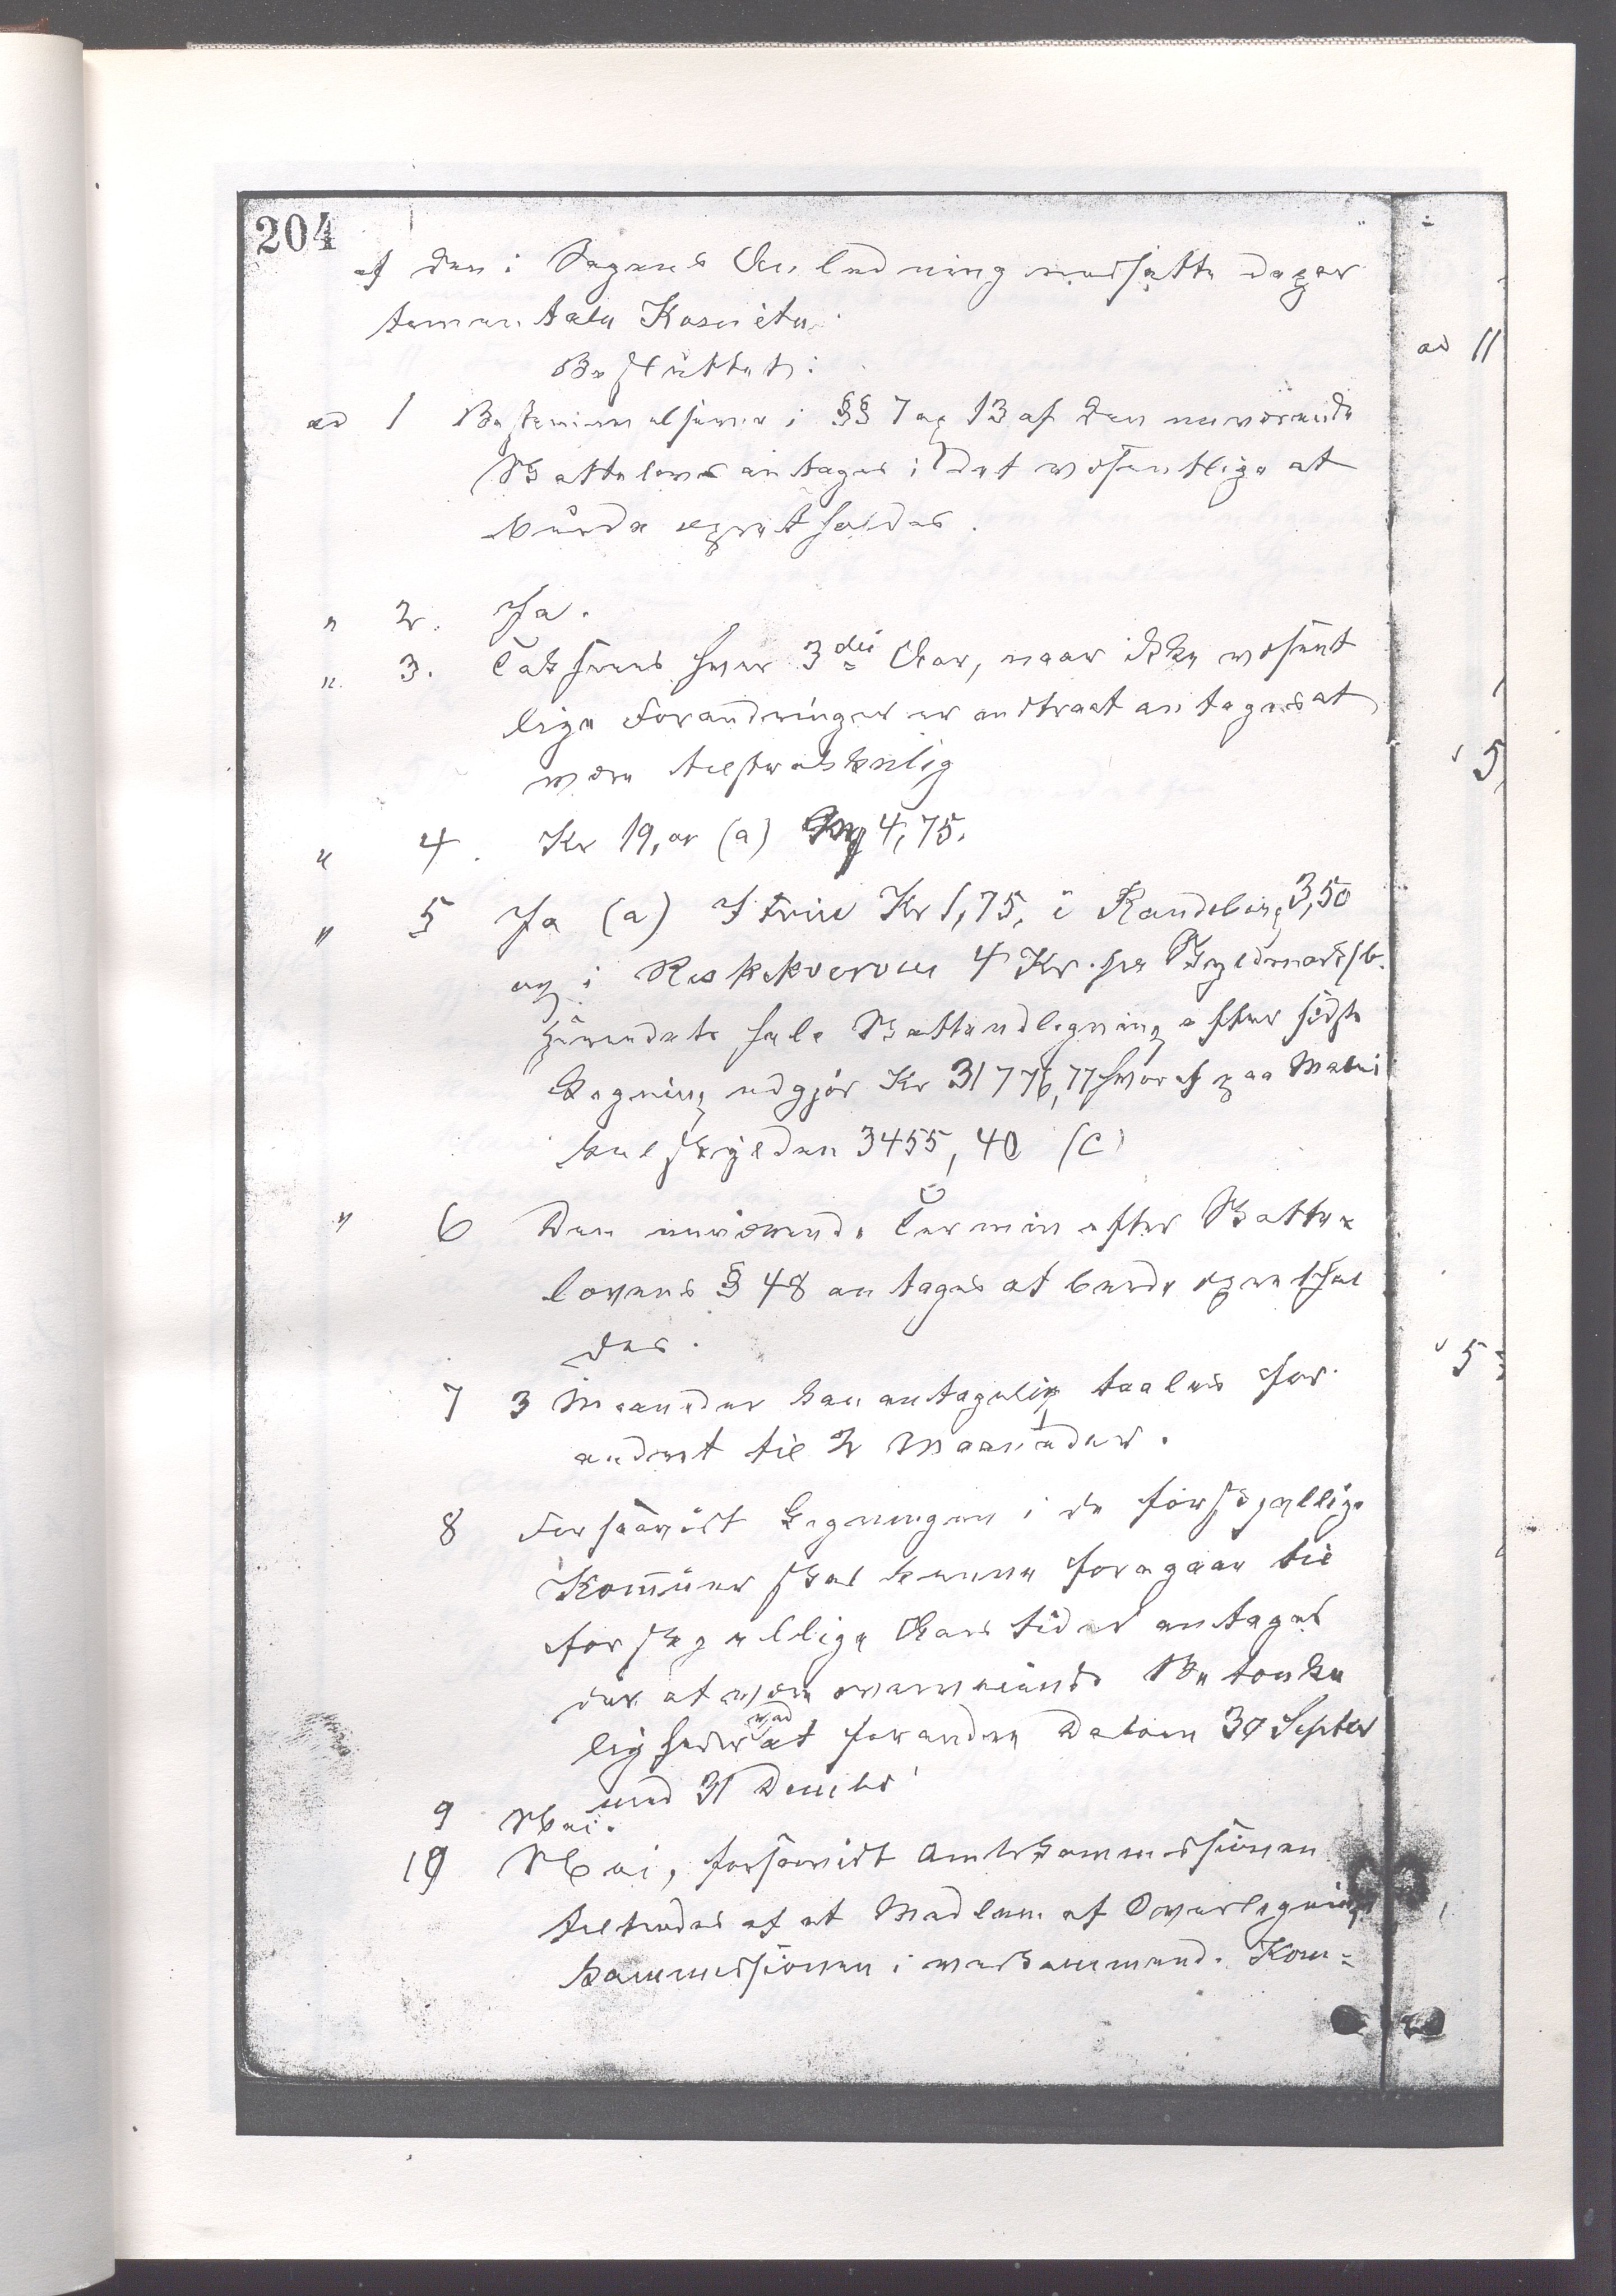 204
af den i Sagens Anledning nedsatte depar
tementale Komite.
Besluttet:
ad 1 Bestemmelserne i §§ 7 og 13 af den nuværende
Skattelov antages i det væsentlige at
burde opretholdes.
" 2. Ja.
" 3. Taksering hver 3die Aar, naar ikke væsent
lige Forandringer er indtraat antages at
være tilstrækkelig
" 4. Kr 19, or (a) 4,75.
" 5 Ja (a) I Kr 1,75, i 3,50
og i 4 Kr. pr Skyldmark
hele Skatteudlegning efter sidste
Ligning udgjør Kr 31776,77 hvoraf paa Matri
kulskylden 3455,40 (C)
" 6 Den nuværende Termin efter Skatte-
lovens § 48 antages at burde oprethol
des.
7 3 Maaneder kan antagelig taales for
andret til 2 Maaneder.
8 Forsaavidt Ligningen i de forskjellige
Kommuner skal kunne foregaa til
forskjellige Aars tider antages
der at være overveiende Betænke
ligheder ved at forandre Datoen 30 Septbr
med 31 Decmbr
9 Nei.
10 Nei, forsaavidt Amtskommissionen
tiltrædes af et Medlem af Overlignings
kommissionen i vedkommende Kom-
ad 11
5
5